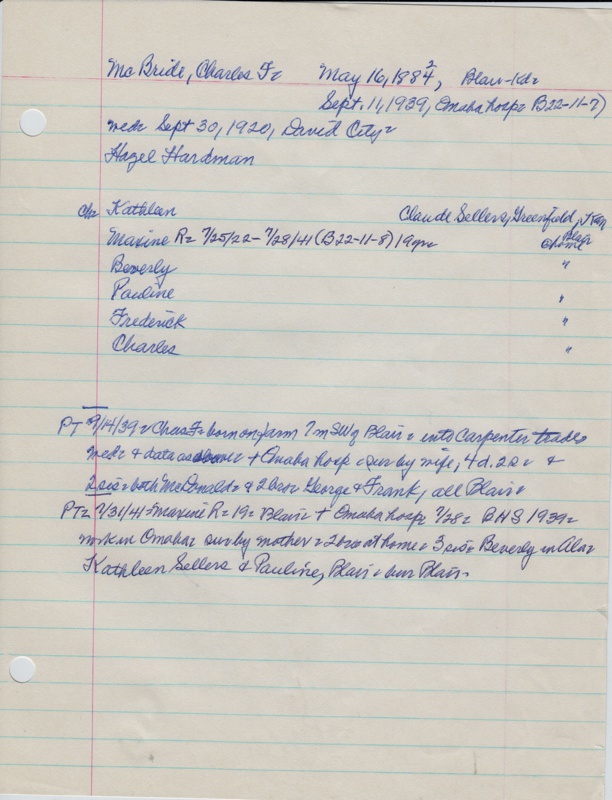 McBride, Charles F= May 16, 1884 2, Blair-Kd=
Sept. 11, 1939, Omaha hosp= B22-11-7)
med= Sept 30, 1920, David City=
Hazel Hardman
ch= Kathleen Claude Sellers, Greenfield,
Maxine R= 7/25/22- 7/28/41 (B22-11-8) 19yr= Blair home
Beverly "
Pauline "
Frederick "
Charles "
PT 9/14/39= Chas F= born on farm 7 m SW of Blair= into Carpenter trade=
med= & data as above + Omaha hosp= sur by wife, 4 d. 2 s= &
2 sis= both McDonald= & 2 bro= George & Frank, all Blair=
PT= 7/31/41= Maxine R= 19= Blair= + Omaha hosp= 7/28= BHS 1939=
work in Omaha= sur by mother= 2 bro at home= 3 sis= Beverly in Ala=
Kathleen Sellers & Pauline, Blair= bur Blair=